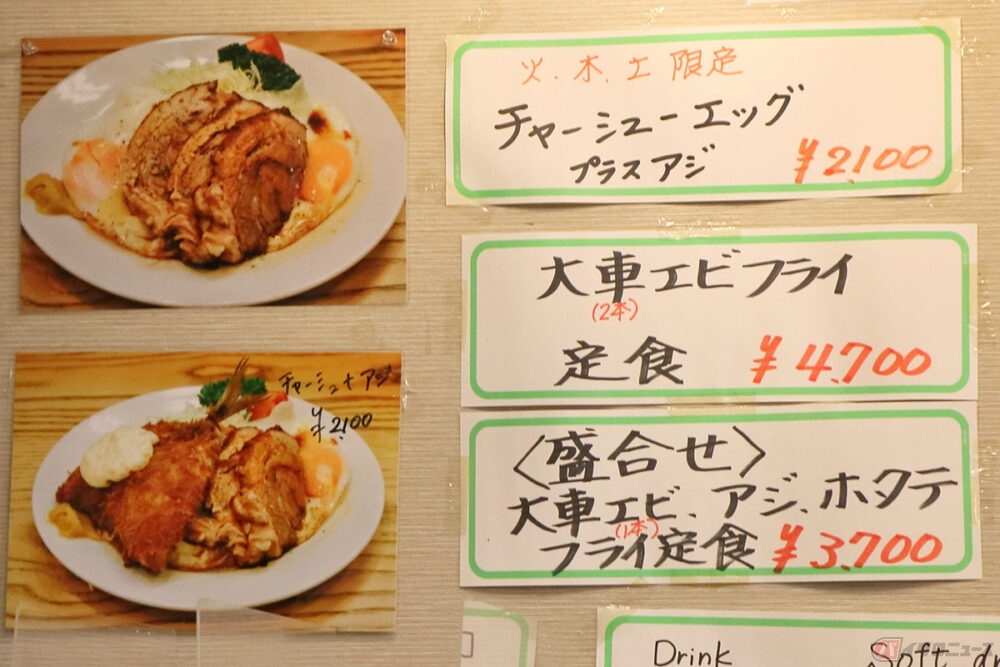 火.木.土 限定
チャーシューエッグ
プラス アジ
¥2,100
大車エビフライ
(2本)
定食 ¥4,700
〈盛合せ〉
大車エビ、アジ、ホタテ
(1本)
フライ定食 ¥3,700
チャーシュ+アジ
¥2,100
Drink
Soft dr